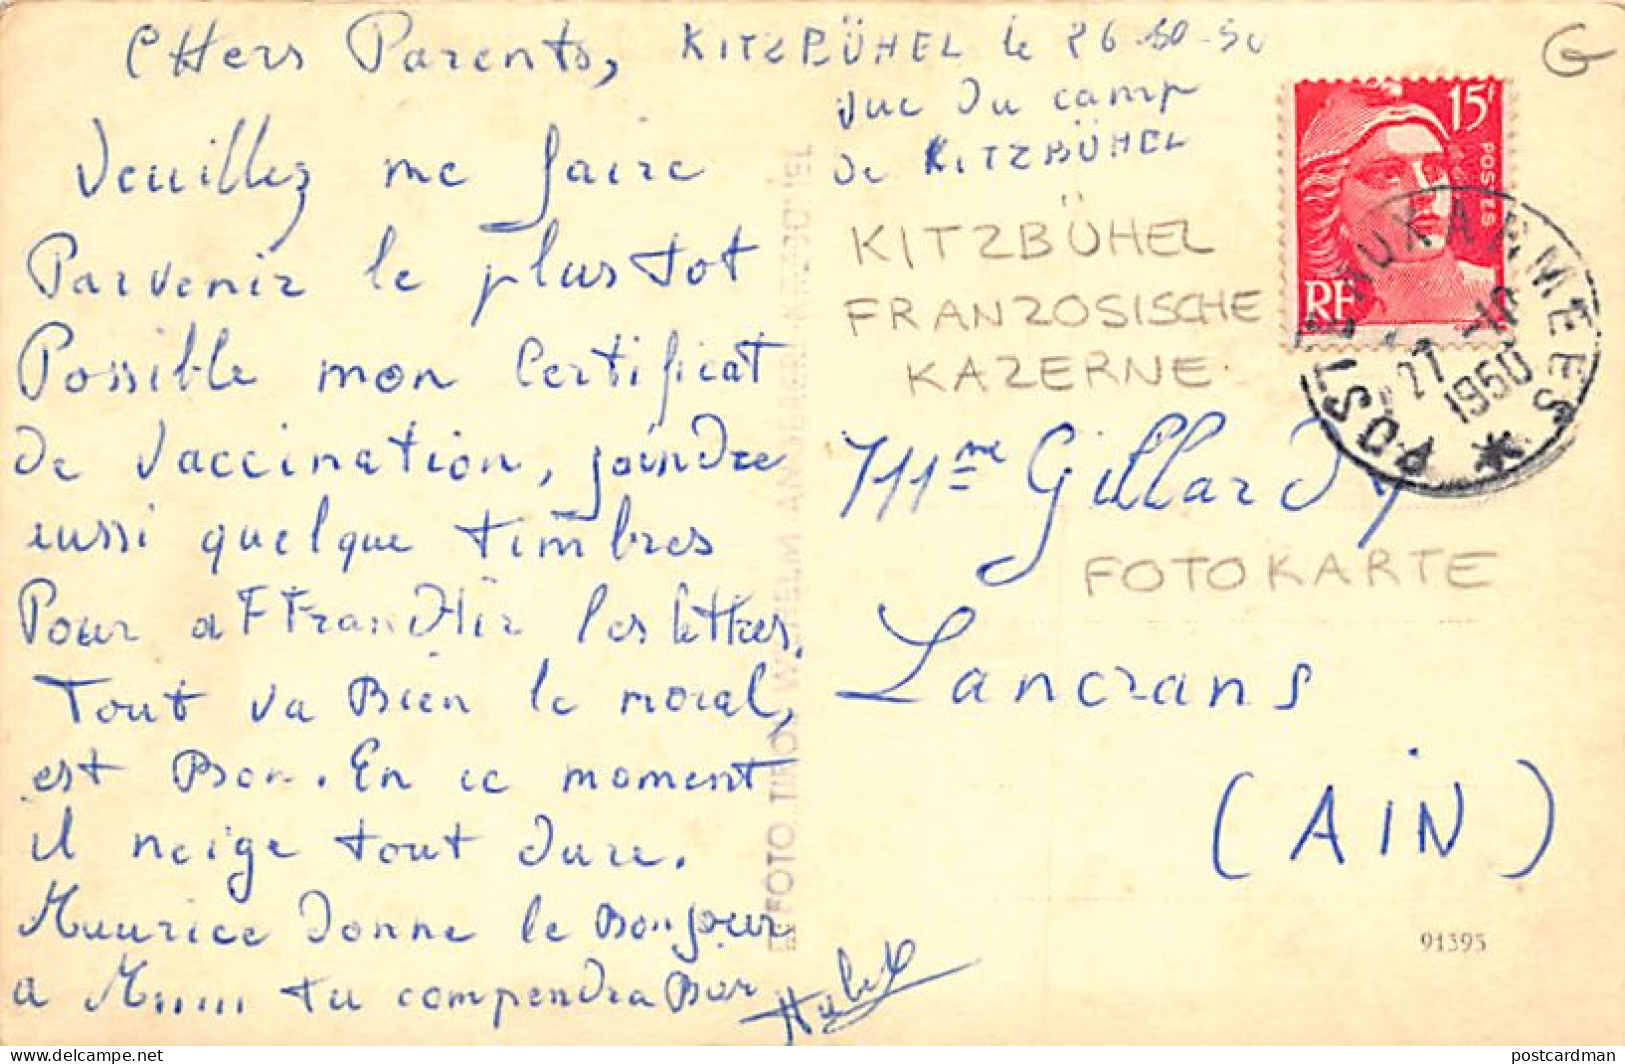 CHers Parents,
Veuillez me faire
Parvenir le plus tot
Possible mon Certificat
de Vaccination, joindre
aussi quelque timbres
Pour affrandHir les lettres.
Tout va Bien le moral,
est Bon. En ce moment
il neige tout dure.
Maurice donne le Bonjour
a M...... tu compendra Bar
Hubert
KITZBÜHEL le 26-10-50
vue du camp
de KITZBÜHEL
KITZBÜHEL
FRANZOSISCHE
KAZERNE.
Mme Gillardy
FOTOKARTE
Lancrans
(AIN)
91395
G
15f
POSTES
RF
POSTE AUX ARMÉES
27-10
1950
postcardman
delcampe.net